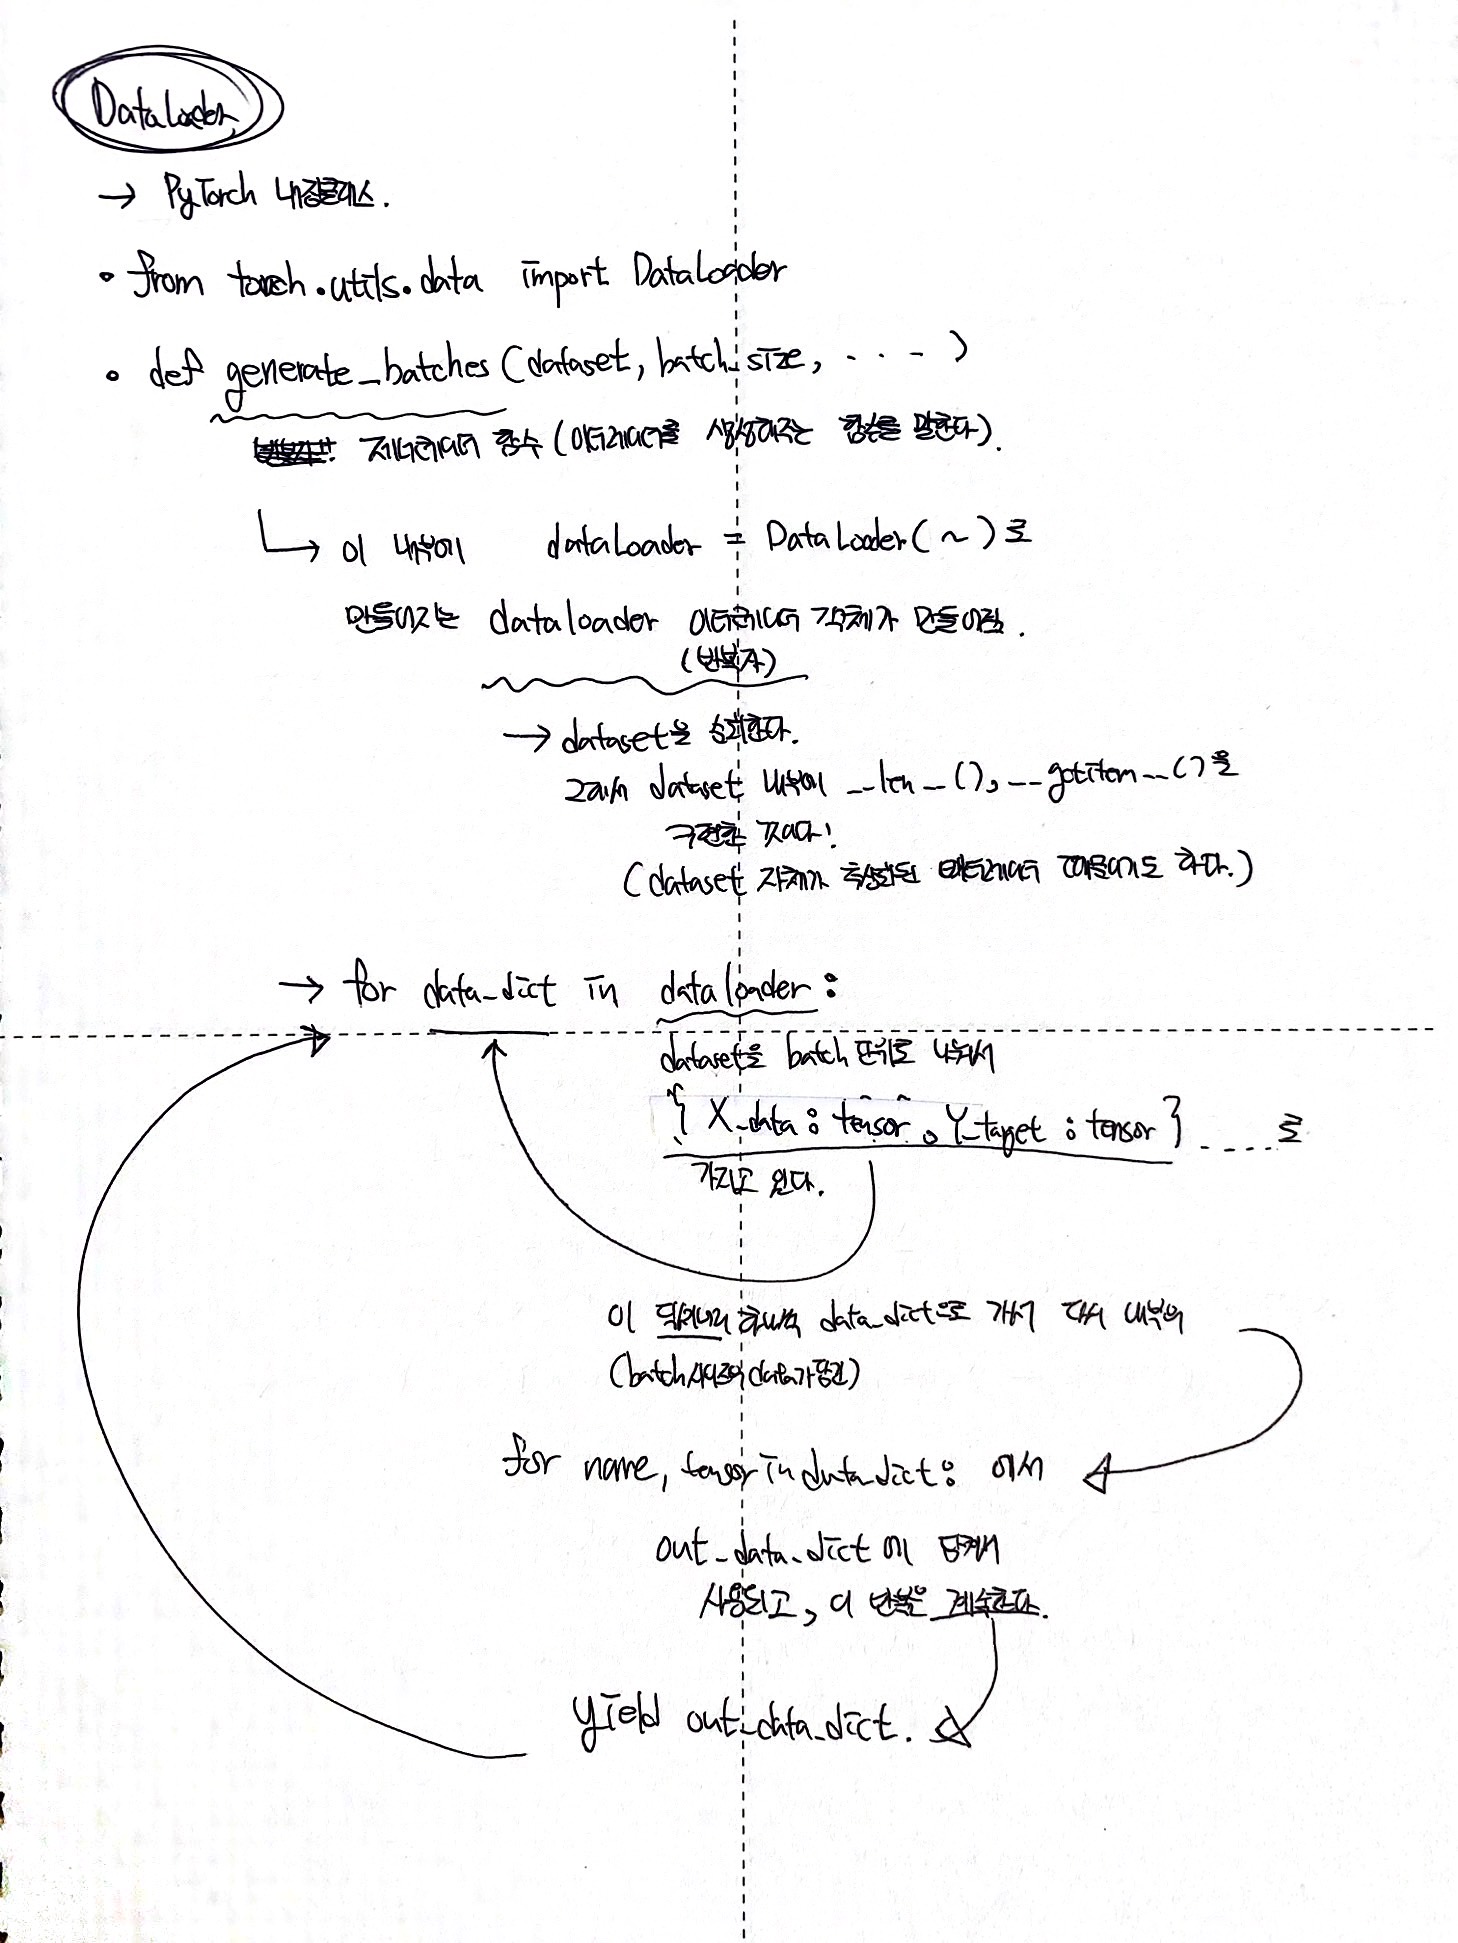 DataLoader
→ PyTorch 내장클래스.
• from torch.utils.data import DataLoader
• def generate_batches (dataset, batch_size, ....)
제너레이터 함수 (이터레이터를 생성해주는 함수를 말한다).
→ 이 내부에 dataLoader = DataLoader(~)로
만들어지는 dataloader 이터레이터 객체가 만들어짐.
(반복자)
→ dataset을 순회한다.
그래서 dataset 내부에 __len__(), __getitem__()을
구현한 것이다!
(dataset 자체가 특성화된 이터레이터 때문이기도 하다.)
→ for data_dict in dataloader:
dataset을 batch 단위로 나눠서
{ X_data : tensor, Y_target : tensor } .....로
가지고 있다.
이 딕셔너리 하나씩 data_dict으로 가서 다시 내부의
(batch사이즈의 data가 담긴)
for name, tensor in data_dict: 에서
out_data_dict에 담겨서
사용되고, 이 반복은 계속한다.
yield out_data_dict.